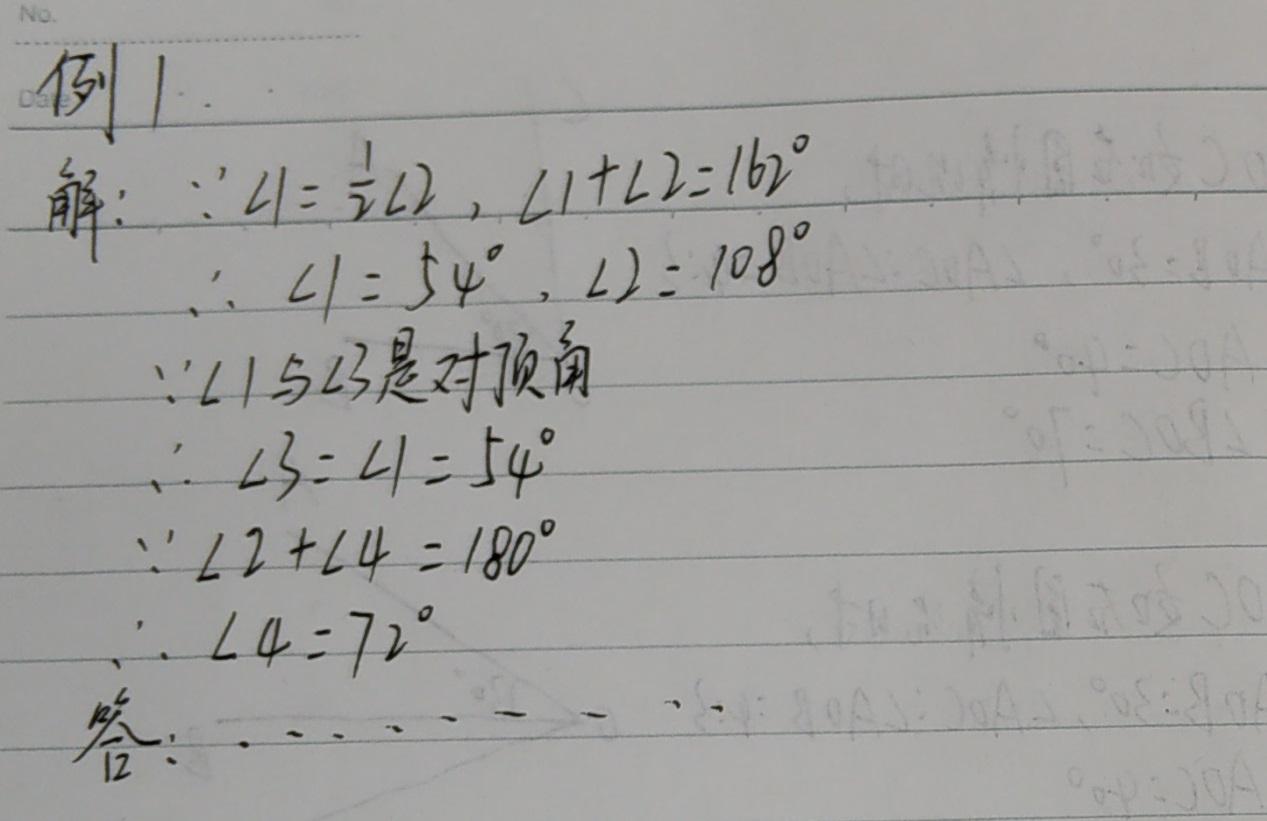 No.
Date
例1
解: ∵∠1=½∠2, ∠1+∠2=162°
∴ ∠1=54°, ∠2=108°
∵∠1与∠3是对顶角
∴ ∠3=∠1=54°
∵ ∠2+∠4=180°
∴ ∠4=72°
答: ..........